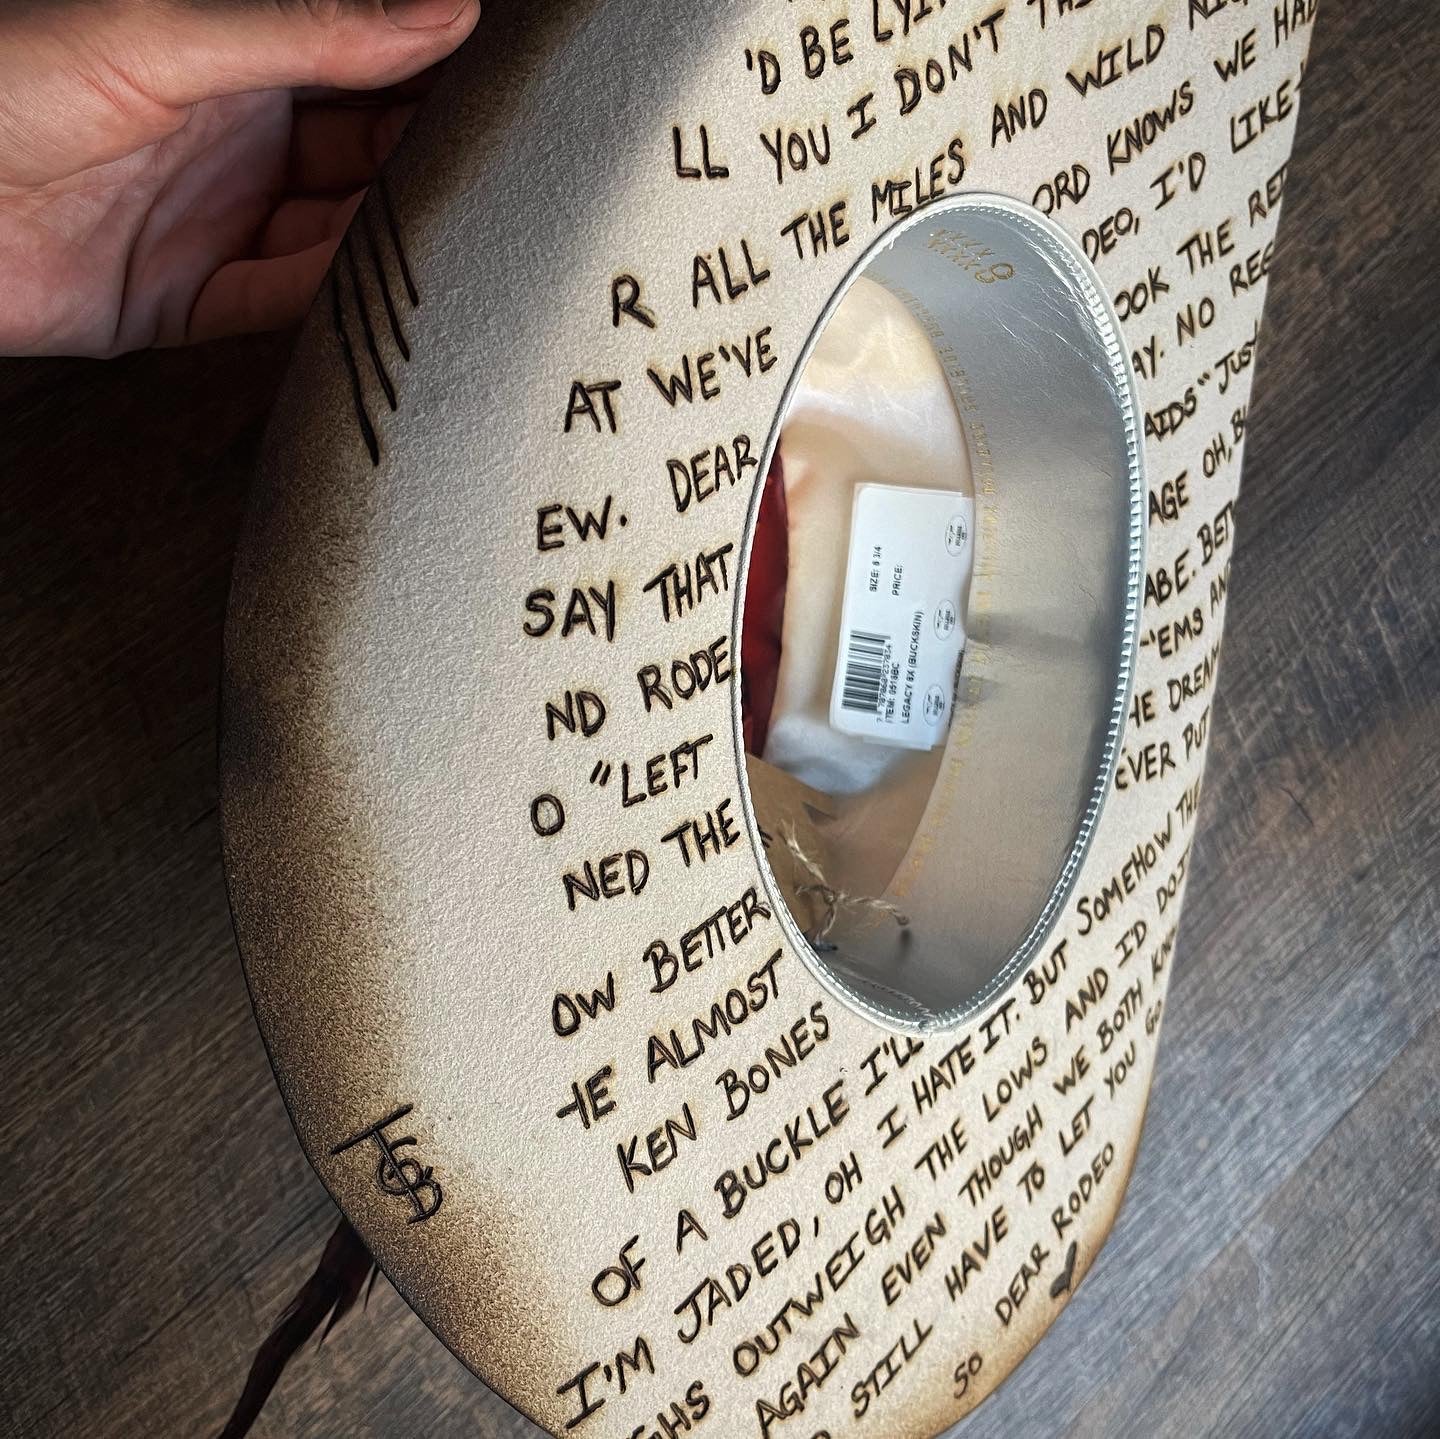 'D BE LYI
LL YOU I DON'T THI
R ALL THE MILES AND WILD NIG
AT WE'VE ORD KNOWS WE HAD
EW. DEAR DEO, I'D LIKE
SAY THAT OOK THE REI
ND RODE AY. NO REG
O "LEFT AIDS" JUST
NED THE AGE OH, BU
OW BETTER ABE. BETW
HE ALMOST -'EMS AND
KEN BONES HE DREAM
OF A BUCKLE I'LL EVER PUT
I'M JADED, OH I HATE IT. BUT SOMEHOW THE
GHS OUTWEIGH THE LOWS AND I'D DO IT
AGAIN EVEN THOUGH WE BOTH KNO
D STILL HAVE TO LET YOU GO
SO DEAR RODEO
TCB
SIZE: 6 3/4
PRICE:
ITEM: 0518BC
LEGACY 8X (BUCKSKIN)
XXXX
XXXX 8